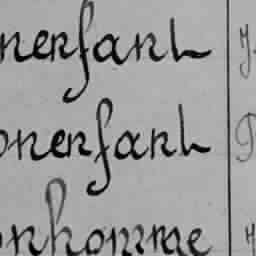 nenfant
onenfant
onhomme